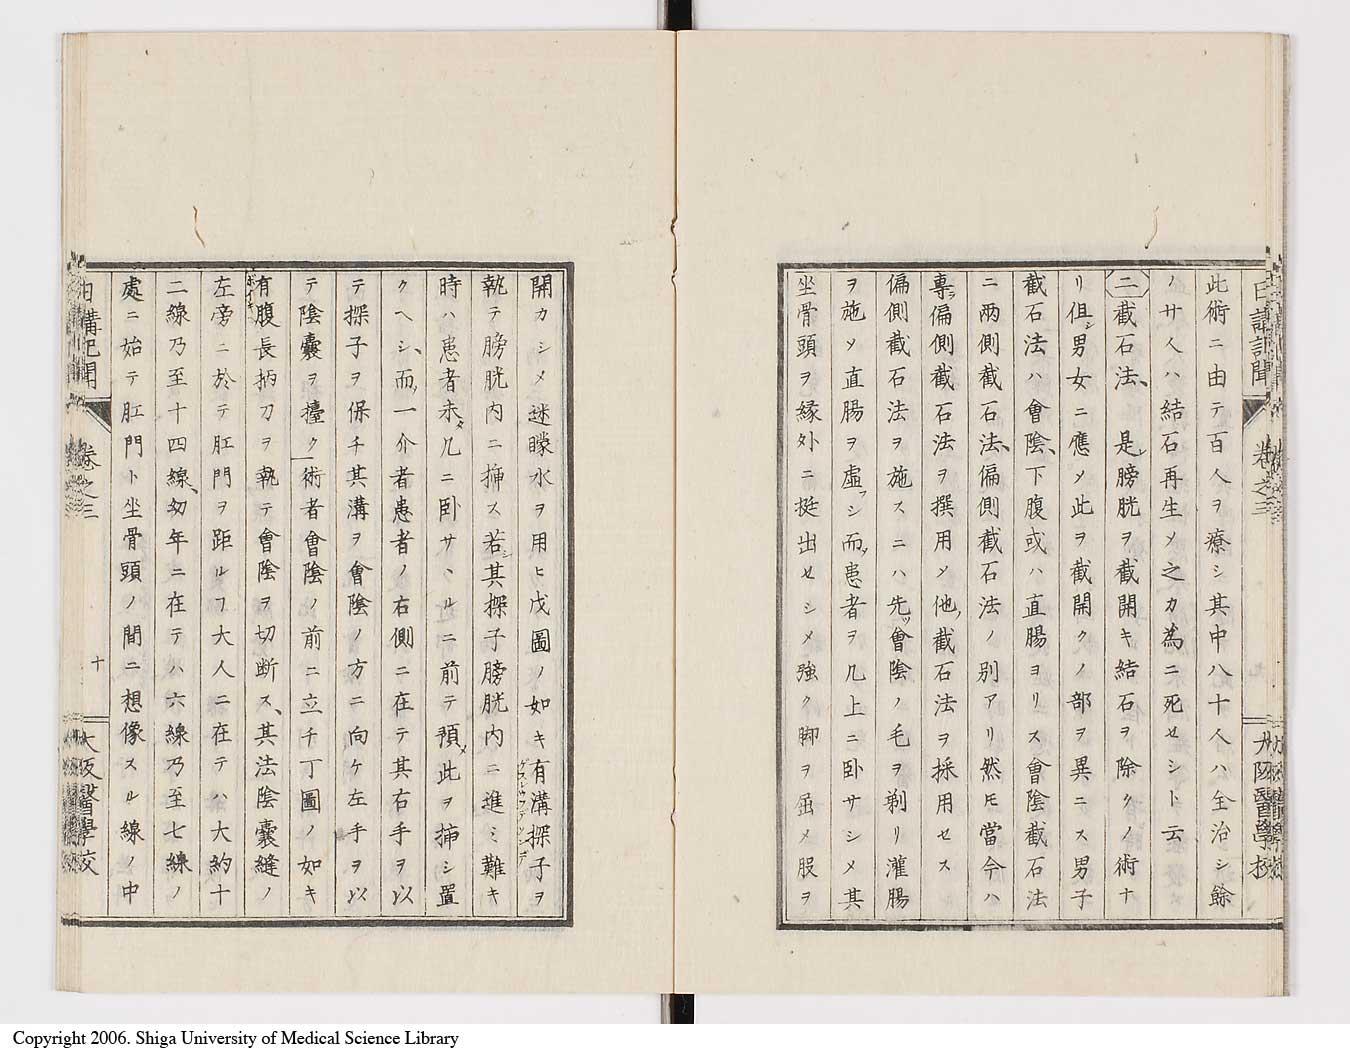 日講記聞 卷之三 大阪醫學校
此術ニ由テ百人ヲ療シ其中八十人ハ全治シ餘
ノ廿人ハ結石再生〆之カ為ニ死セシト云
二截石法、是レ膀胱ヲ截開キ結石ヲ除クノ術ナ
リ但シ男女ニ應〆此ヲ截開クノ部ヲ異ニス男子
截石法ハ會陰、下腹或ハ直腸ヨリス會陰截石法
ニ兩側截石法、偏側截石法ノ別アリ然𪜈當今ハ
專ラ偏側截石法ヲ撰用〆他ノ截石法ヲ採用セス
偏側截石法ヲ施スニハ先ツ會陰ノ毛ヲ剃リ灌腸
ヲ施〆直腸ヲ虛フシ而ノ患者ヲ几上ニ卧サシメ其
坐骨頭ヲ緣外ニ挺出セシメ強ク脚ヲ屈メ股ヲ
開カシメ迷矇水ヲ用ヒ戊圖ノ如キ有溝探子ヲ
執テ膀胱内ニ挿ス若シ其探子膀胱内ニ進ミ難キ
時ハ患者未タ几ニ卧サヽル二前テ預メ此ヲ挿シ置
クヘシ、而ノ一介者患者ノ右側ニ在テ其右手ヲ以
テ探子ヲ保チ其溝ヲ會陰ノ方ニ向ケ左手ヲ以
テ陰囊ヲ擡ク術者會陰ノ前ニ立チ丁圖ノ如キ
有腹長柄刀ヲ執テ會陰ヲ切断ス、其法陰囊縫ノ
左旁ニ於テ肛門ヲ距ルヿ大人ニ在テハ大約十
二線乃至十四線、幼年ニ在テハ六線乃至七線ノ
處ニ始テ肛門ト坐骨頭ノ間ニ想像スル線ノ中
日講記聞 卷之三 十 大阪醫學校
Copyright 2006. Shiga University of Medical Science Library